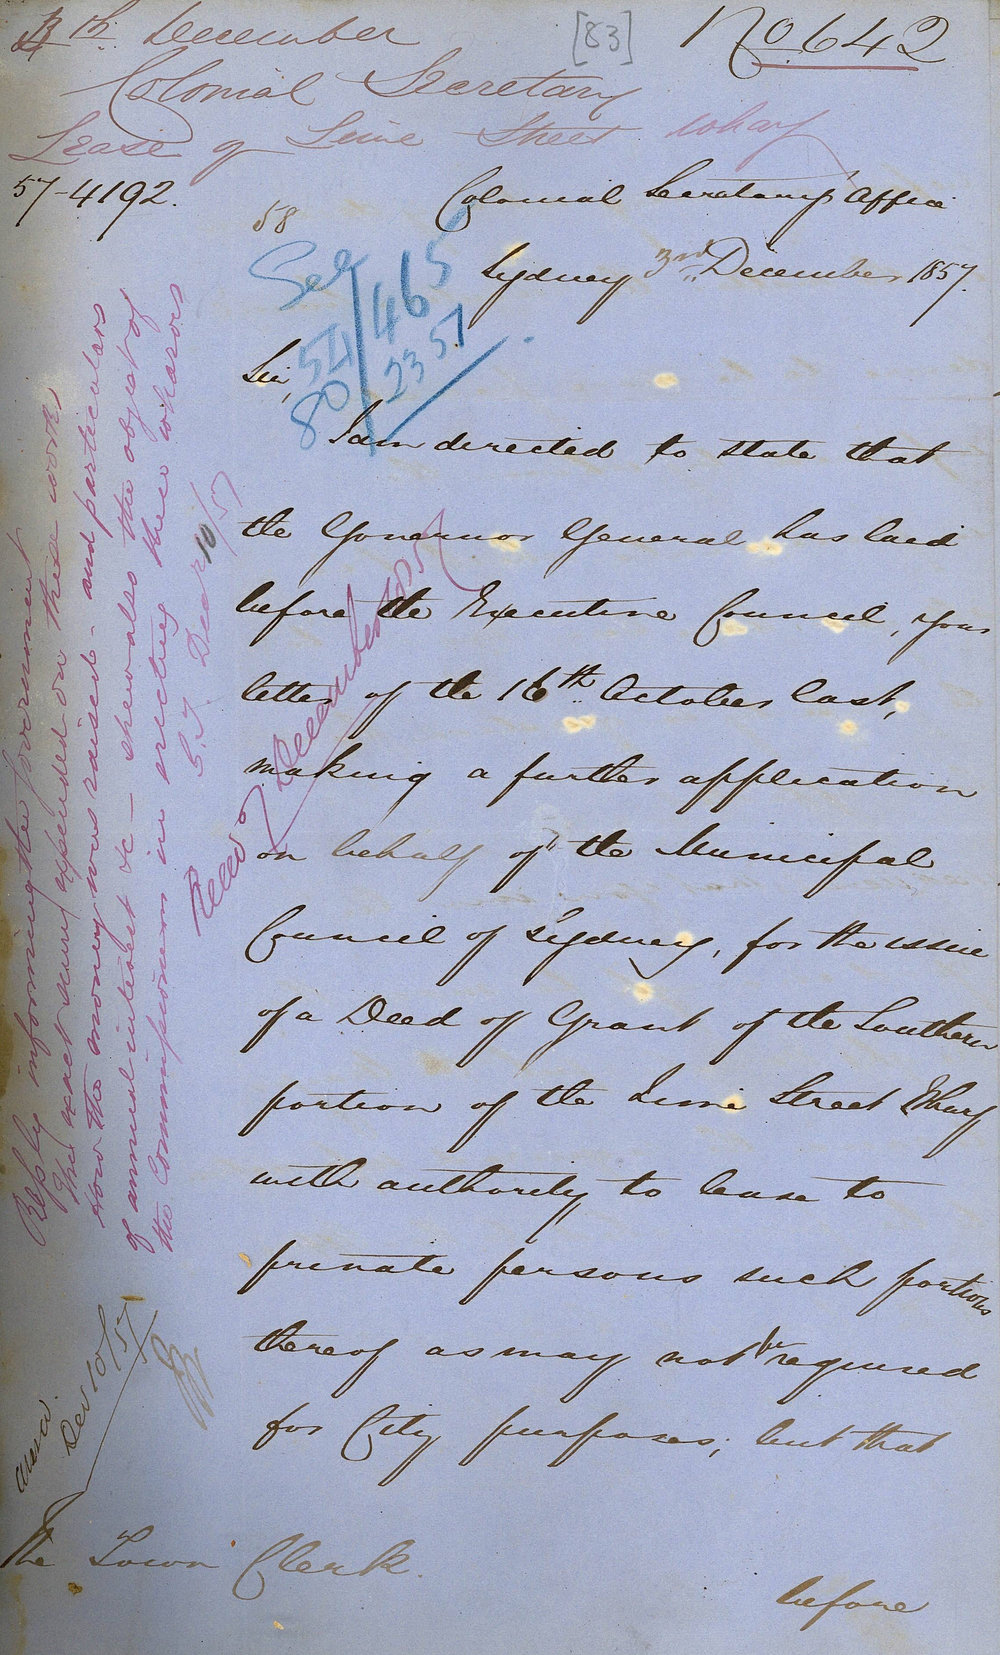 th December
[83]
No 642
Colonial Secretary
Lease of Lime Street Wharf
57-4192.
Colonial Secretary's Office
Sydney 3rd December 1857.
58
See
54/465
80/2357
Sir,
I am directed to state that
the Governor General has laid
before the Executive Council, your
letter of the 16th October last,
making a further application
on behalf of the Municipal
Council of Sydney, for the issue
of a Deed of Grant of the Southern
portion of the Lime Street Wharf
with authority to lease to
private persons such portions
thereof as may not be required
for City purposes; but that
The Town Clerk.
before
Reply informing the Government
the exact sum expended on these works
How the money was raised - and particulars
of annual interest &c - shew also the object of
the Commissioners in erecting these wharves
Decr 10/57
December 10 57
Dec 10/57